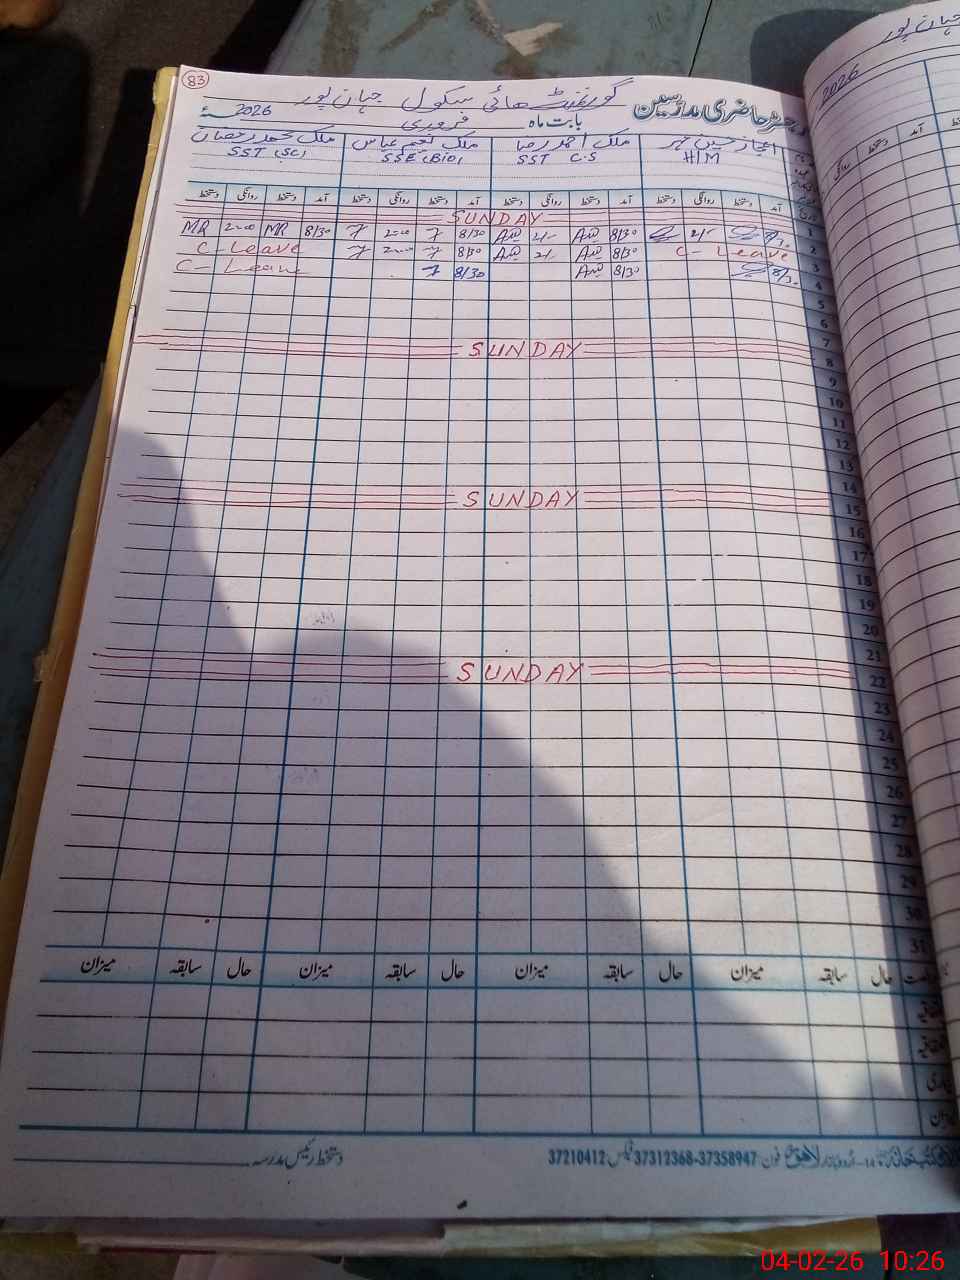 83
گورنمنٹ ہائی سکول جہان پور
رجسٹر حاضری مدرسین
بابت ماہ فروری 2026ء
اعجاز حسین
H/M
ملک احمد رضا
SST C.S
ملک نعیم عباس
SSE (Bio)
ملک محمد رمضان
SST (SC)
آمد دستخط روانگی دستخط آمد دستخط روانگی دستخط آمد دستخط روانگی دستخط آمد دستخط روانگی دستخط
SUNDAY 1
MR 2:00 MR 8/30 2:00 8/30 2/- 8/30 2/- 2
C-Leave 2:00 8/30 2/- 8/30 C-Leave 3
C-Leave 8/30 8/30 8/30 4
5
6
7
SUNDAY 8
9
10
11
12
13
14
SUNDAY 15
16
17
18
19
20
21
SUNDAY 22
23
24
25
26
27
28
29
30
31
حال سابقہ میزان حال سابقہ میزان حال سابقہ میزان حال سابقہ میزان
دستخط رئیس مدرسہ
14-اردو بازار لاہور فون 37312368-37358947 فیکس 37210412
2026
جہان پور
آمد دستخط روانگی
04-02-26 10:26